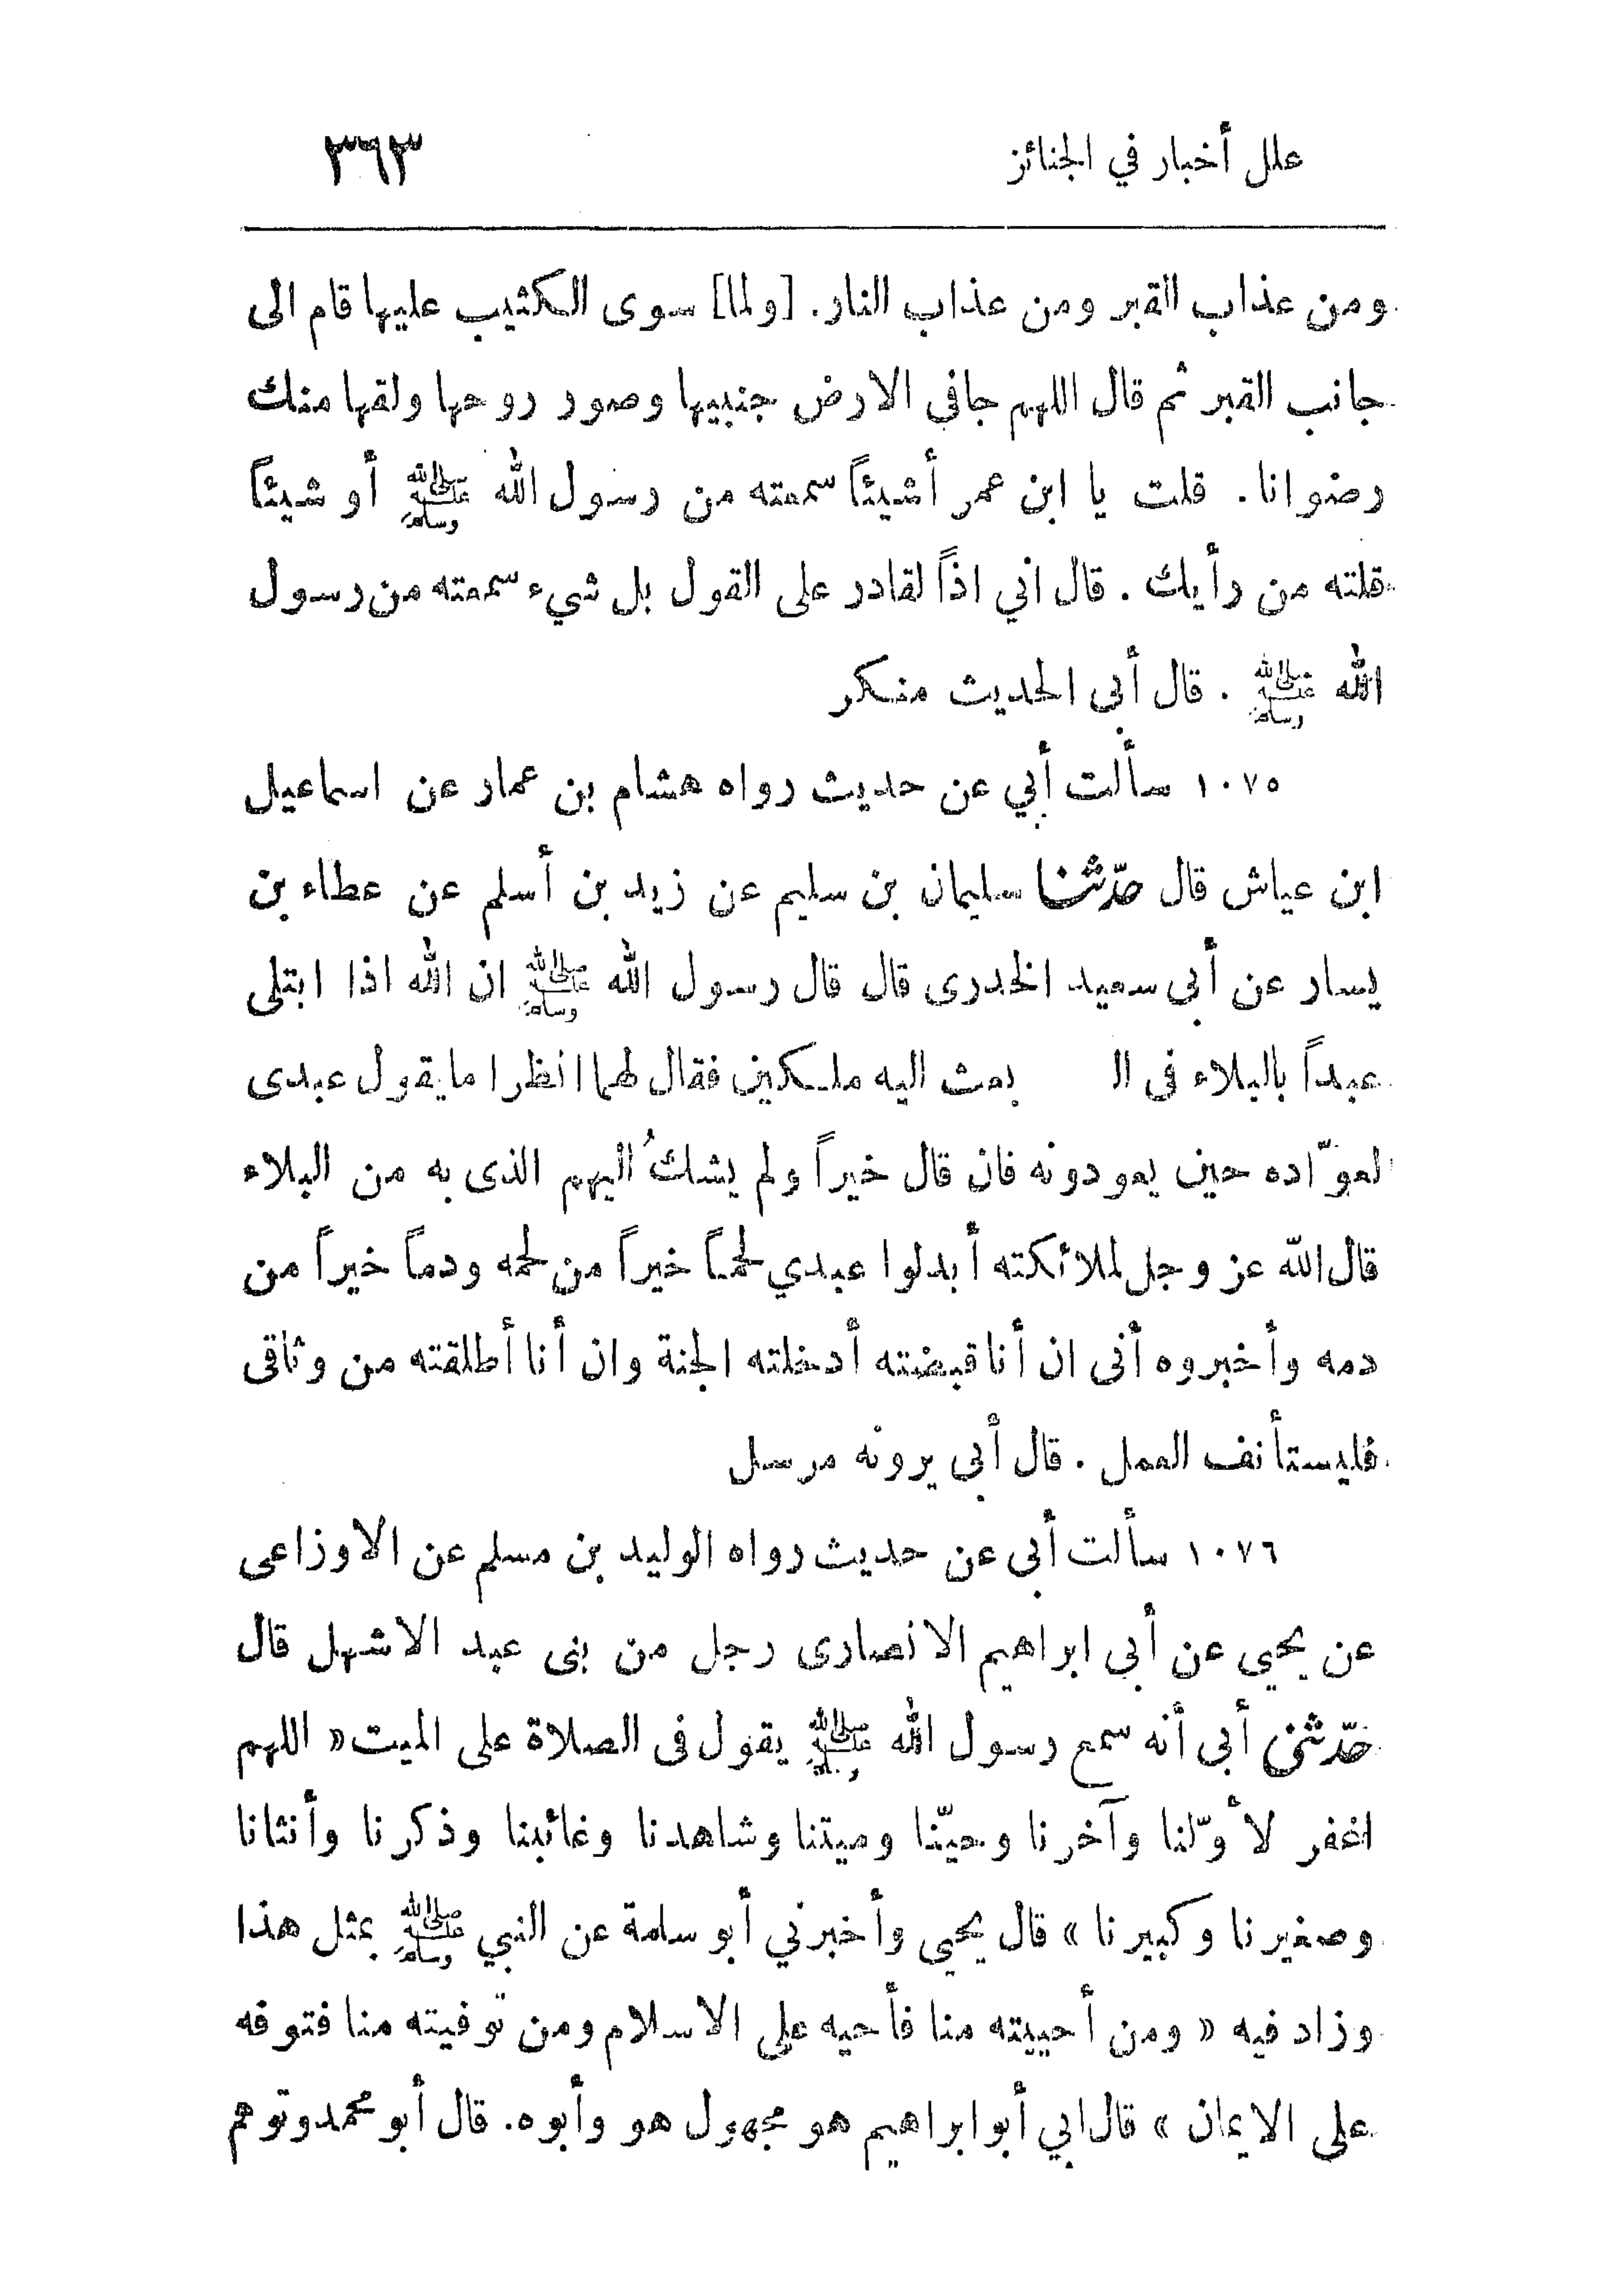 علل أخبار في الجنائز ٣٦٣
ومن عذاب القبر ومن عذاب النار. [ولما] سوى الكثيب عليها قام الى
جانب القبر ثم قال اللهم جافي الارض جنبيها وصور روحها ولقها منك
رضوانا. قلت يا ابن عمر أشيئاً سمعته من رسول الله ﷺ أو شيئاً
قلته من رأيك. قال اني اذاً لقادر على القول بل شيء سمعته من رسول
الله ﷺ. قال أبي الحديث منكر
١٠٧٥ سألت أبي عن حديث رواه هشام بن عمار عن اسماعيل
ابن عياش قال حدّثنا سليمان بن سليم عن زيد بن أسلم عن عطاء بن
يسار عن أبى سعيد الخدرى قال قال رسول الله ﷺ ان الله اذا ابتلى
عبداً بالبلاء فى ال بعث اليه ملكين فقال لهما انظرا ما يقول عبدى
لعوّاده حين يعودونه فان قال خيراً ولم يشكُ اليهم الذى به من البلاء
قال الله عز وجل لملائكته أبدلوا عبدي لحماً خيراً من لحمه ودماً خيراً من
دمه وأخبروه أنى ان أنا قبضته أدخلته الجنة وان أنا أطلقته من وثاقى
فليستأنف العمل. قال أبى يرونه مرسل
١٠٧٦ سألت أبى عن حديث رواه الوليد بن مسلم عن الاوزاعى
عن يحيي عن أبي ابراهيم الانصارى رجل من بنى عبد الاشهل قال
حدّثنى أبي أنه سمع رسول الله ﷺ يقول فى الصلاة على الميت « اللهم
اغفر لأوّلنا وآخرنا وحيّنا وميتنا وشاهدنا وغائبنا وذكرنا وأنثانا
وصغيرنا وكبيرنا » قال يحيى وأخبرني أبو سلمة عن النبي ﷺ بمثل هذا
وزاد فيه « ومن أحييته منا فأحيه على الاسلام ومن توفيته منا فتوفه
على الايمان » قال ابي أبو ابراهيم هو مجهول هو وأبوه. قال أبو محمد وتوهم